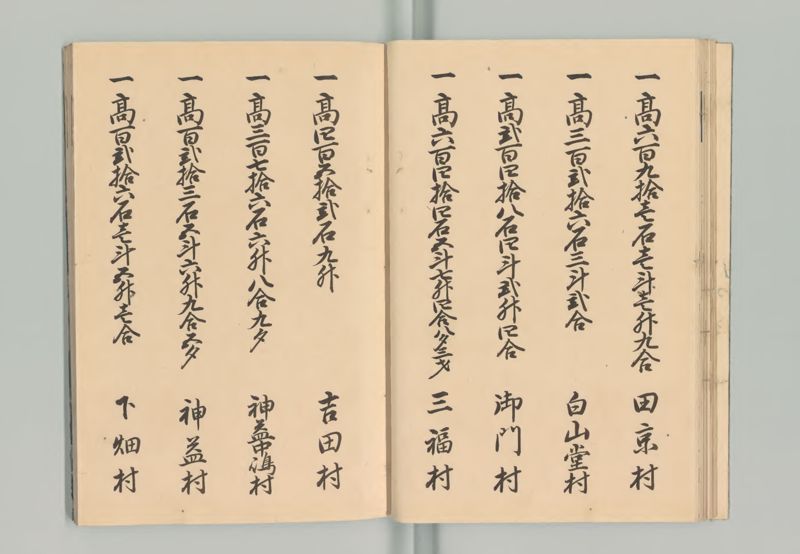 一高六百九拾壱石壱斗壱升九合 田京村
一高三百弐拾六石三斗弐合 白山堂村
一高弐百四拾八石四斗弐升四合 御門村
一高六百四拾四石五斗七升四合八夕三才 三福村
一高四百五拾弐石九升 吉田村
一高三百七拾六石六升八合九夕 神益中嶋村
一高百弐拾三石五斗六升九合五夕 神益村
一高百弐拾六石壱斗五升壱合 下畑村